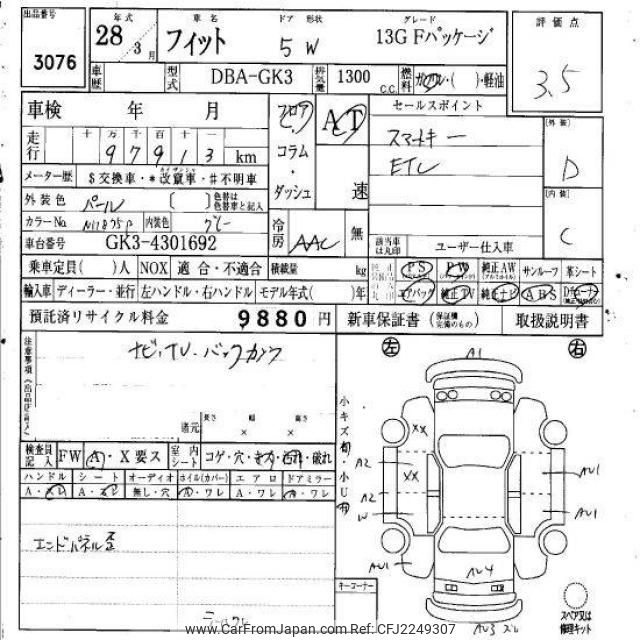 出品番号 年式 車名 ドア 形状 グレード 評価点
3076 28 / 3月 フィット 5W 13G Fパッケージ 3.5
車歴 型式 DBA-GK3 排気量 1300 C.C. 燃料 ガソリン・( )・軽油
車検 年 月 フロア AT セールスポイント
走行 十 万 千 百 十 一
9 7 9 1 3 km コラム・ダッシュ 速 スマートキー
ETC
[外装] D
メーター歴 $交換車・*改竄車・#不明車
[内装] C
外装色 パール [ ] 色替は色替車と記入
カラーNo NH875P 内装色 グレー 冷房 AAC 無
車台番号 GK3-4301692 該当車は丸印 ユーザー仕入車
乗車定員( )人 NOX 適合・不適合 積載量 kg PS PW 純正AW サンルーフ 革シート
輸入車 ディーラー・並行 左ハンドル・右ハンドル モデル年式( )年 エアバッグ 純正TV 純正ナビ ABS
預託済リサイクル料金 9880 円 新車保証書 (保証継完備のもの) 取扱説明書
注意事項 ナビ、TV、バックカメラ
長さ 幅 高さ
還元 × ×
左 右
検査員記入 FW A・X要ス 室内シート コゲ・穴・キズ・汚れ・破れ
ハンドル シート オーディオ ホイル(カバー) エアロ ドアミラー
A・スレ A・スレ 無し・穴 A・ワレ A・ワレ A・ワレ
エンドパネル歪
小キズ有・小U有
A1
XX
A2 XX AU1
A2
W AU1
AU1 AU4
キーコーナー
AU3
スペア又は修理キット
www.CarFromJapan.com Ref: CFJ2249307